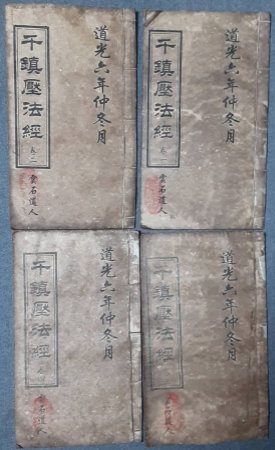 道光六年仲冬月
千鎮壓法經
卷一
雲石道人
道光六年仲冬月
千鎮壓法經
卷二
雲石道人
道光六年仲冬月
千鎮壓法經
雲石道人
道光六年仲冬月
千鎮壓法經
卷四
雲石道人